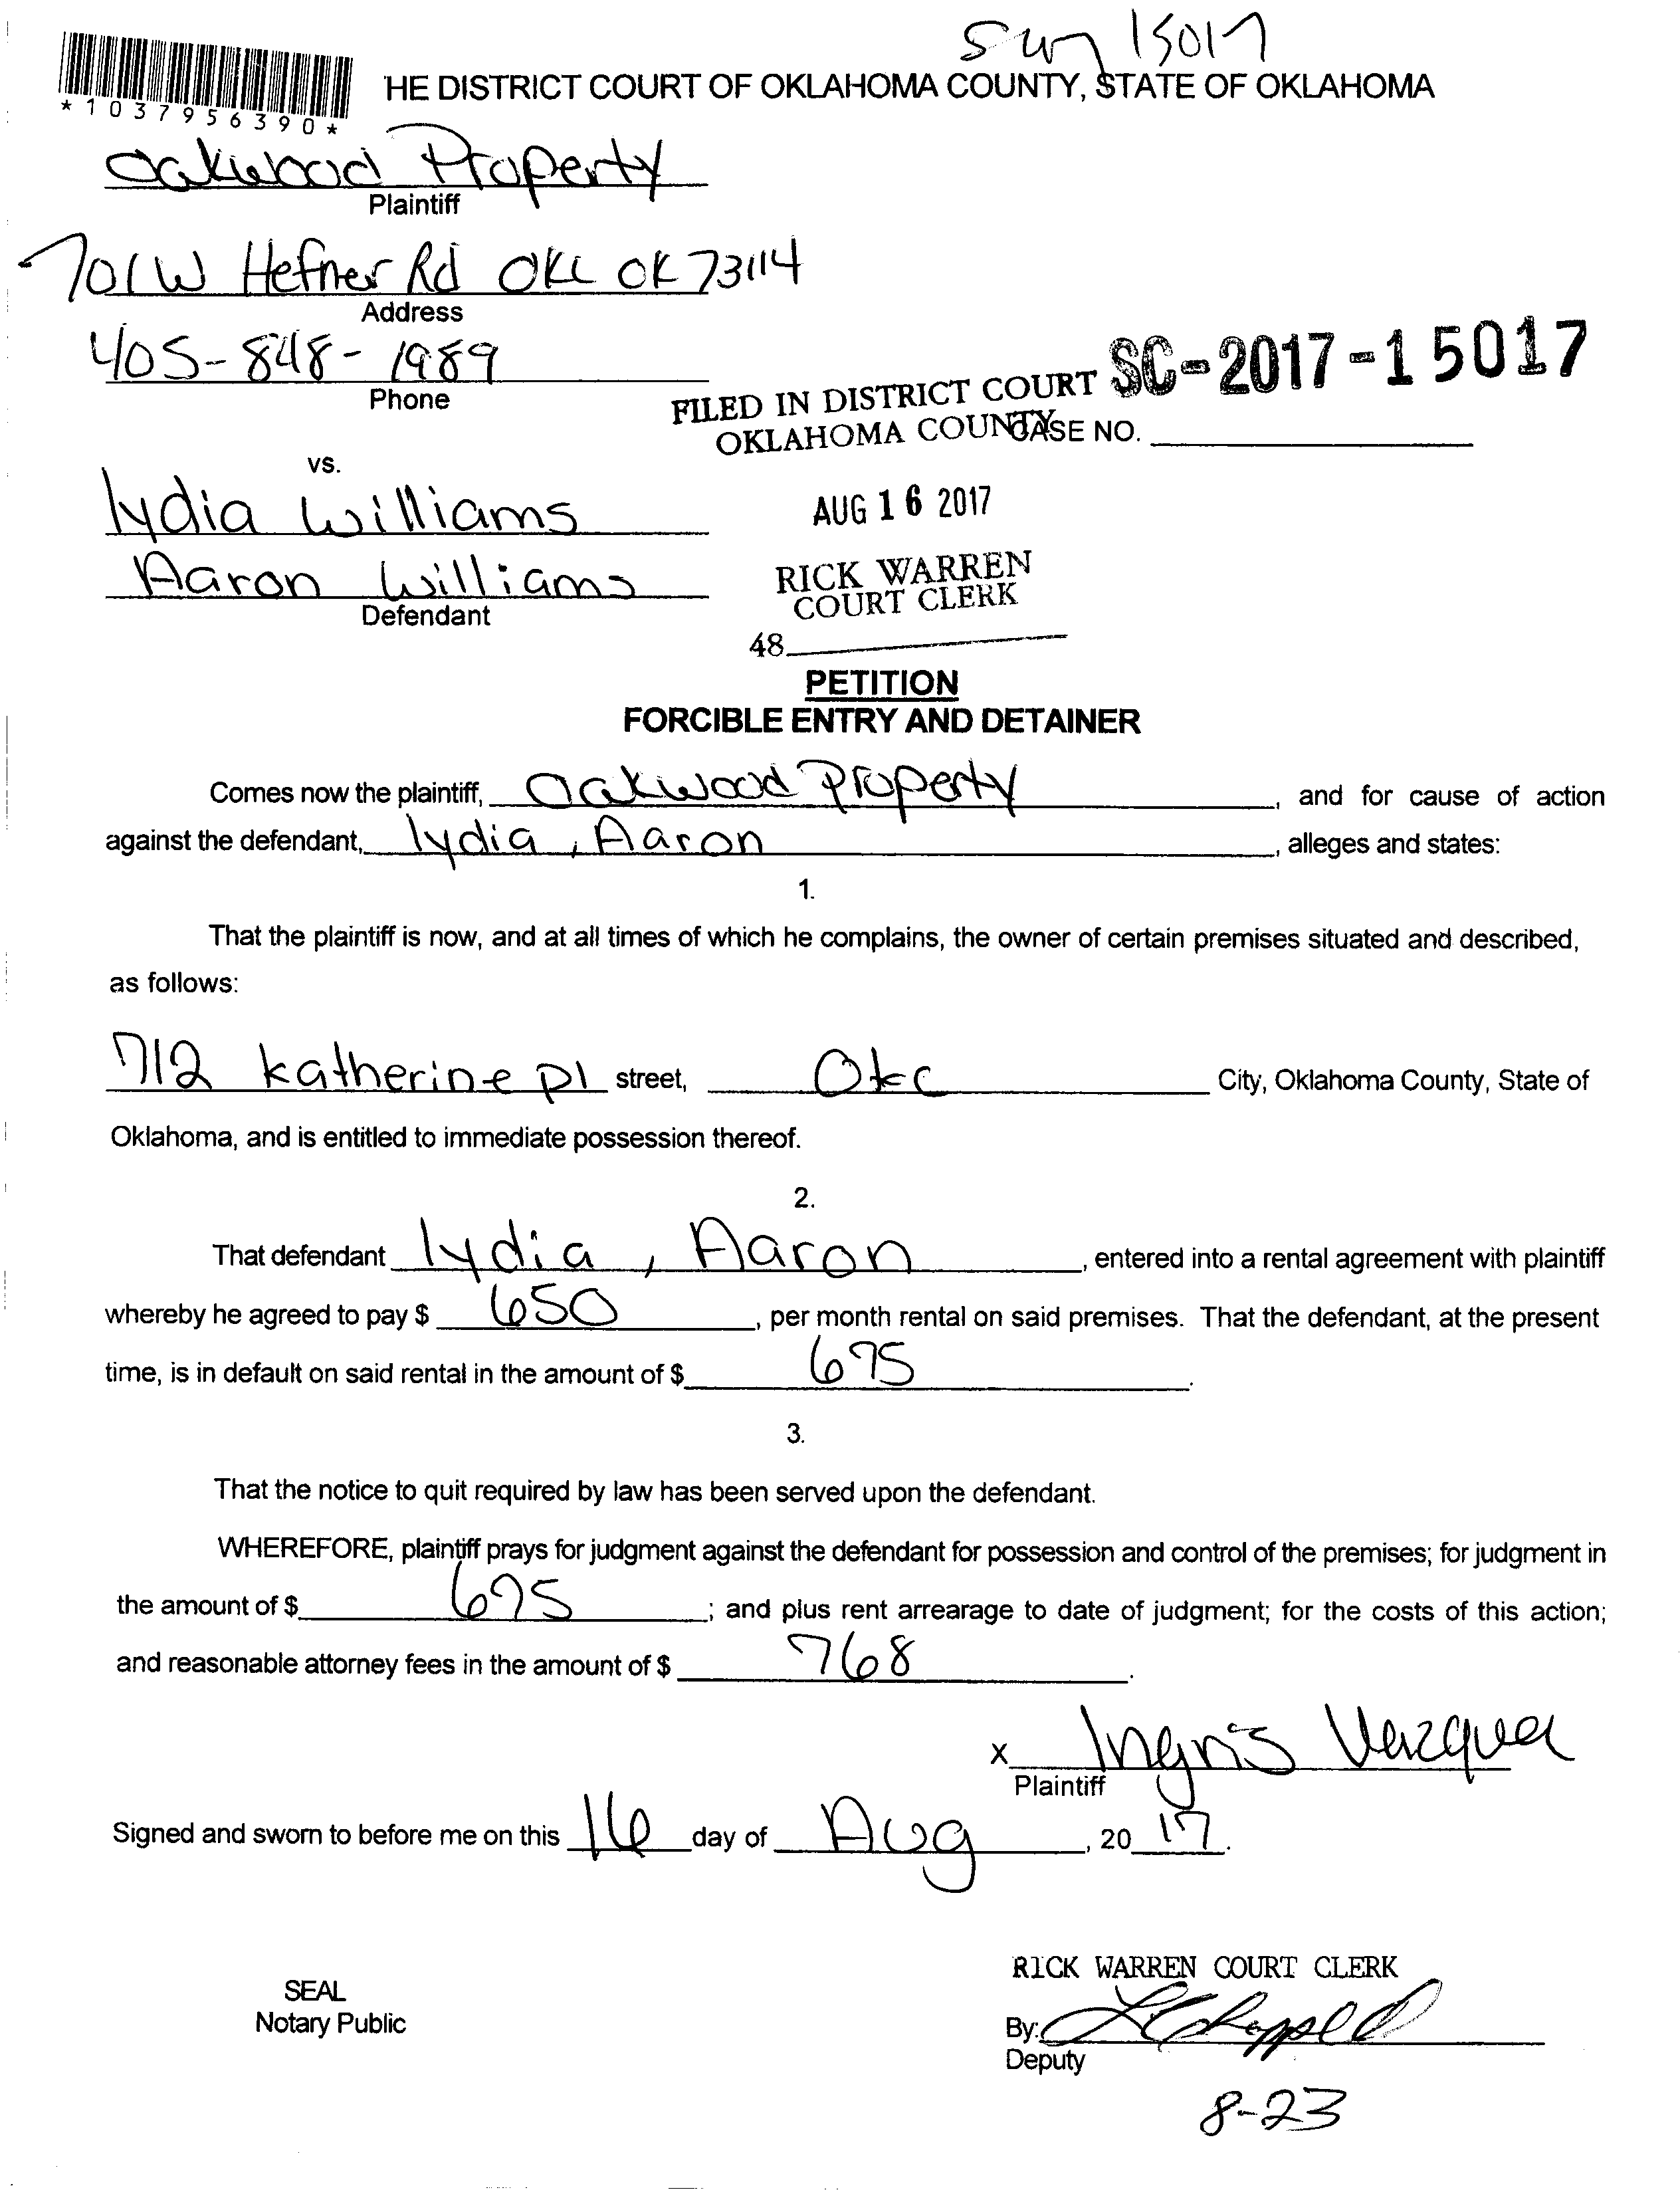 15017
HE DISTRICT COURT OF OKLAHOMA COUNTY, STATE OF OKLAHOMA
*1037956390*
Oakwood Property
Plaintiff
701 W Hefner Rd OKC OK 73114
Address
405-848-1989
Phone
SC-2017-15017
FILED IN DISTRICT COURT
OKLAHOMA COUNTY
CASE NO.
vs.
lydia Williams
AUG 16 2017
Aaron Williams
Defendant
RICK WARREN
COURT CLERK
48
PETITION
FORCIBLE ENTRY AND DETAINER
Comes now the plaintiff, Oakwood Property, and for cause of action
against the defendant, lydia, Aaron, alleges and states:
1.
That the plaintiff is now, and at all times of which he complains, the owner of certain premises situated and described,
as follows:
712 katherine pl street, Okc City, Oklahoma County, State of
Oklahoma, and is entitled to immediate possession thereof.
2.
That defendant lydia, Aaron, entered into a rental agreement with plaintiff
whereby he agreed to pay $ 650, per month rental on said premises. That the defendant, at the present
time, is in default on said rental in the amount of $ 695.
3.
That the notice to quit required by law has been served upon the defendant.
WHEREFORE, plaintiff prays for judgment against the defendant for possession and control of the premises; for judgment in
the amount of $ 695; and plus rent arrearage to date of judgment; for the costs of this action;
and reasonable attorney fees in the amount of $ 768.
x Ingris Vazquez
Plaintiff
Signed and sworn to before me on this 16 day of Aug, 20 17.
SEAL
Notary Public
RICK WARREN COURT CLERK
By:
Deputy
8-23